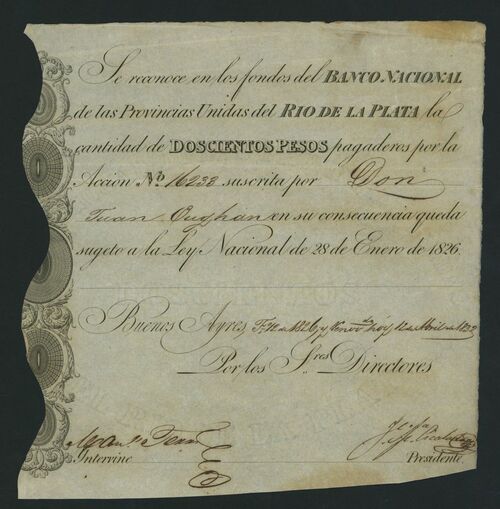 Se reconoce en los fondos del BANCO NACIONAL
de las Provincias Unidas del RIO DE LA PLATA la
cantidad de DOSCIENTOS PESOS pagaderos por la
Accion No. 16233 suscrita por Don
Juan Oughan en su consecuencia queda
sugeto a la Ley Nacional de 28 de Enero de 1826.
Buenos Ayres de 1826 y hoy 12 de Abril de
Por los Sres Directores
Intervine
Presidente.